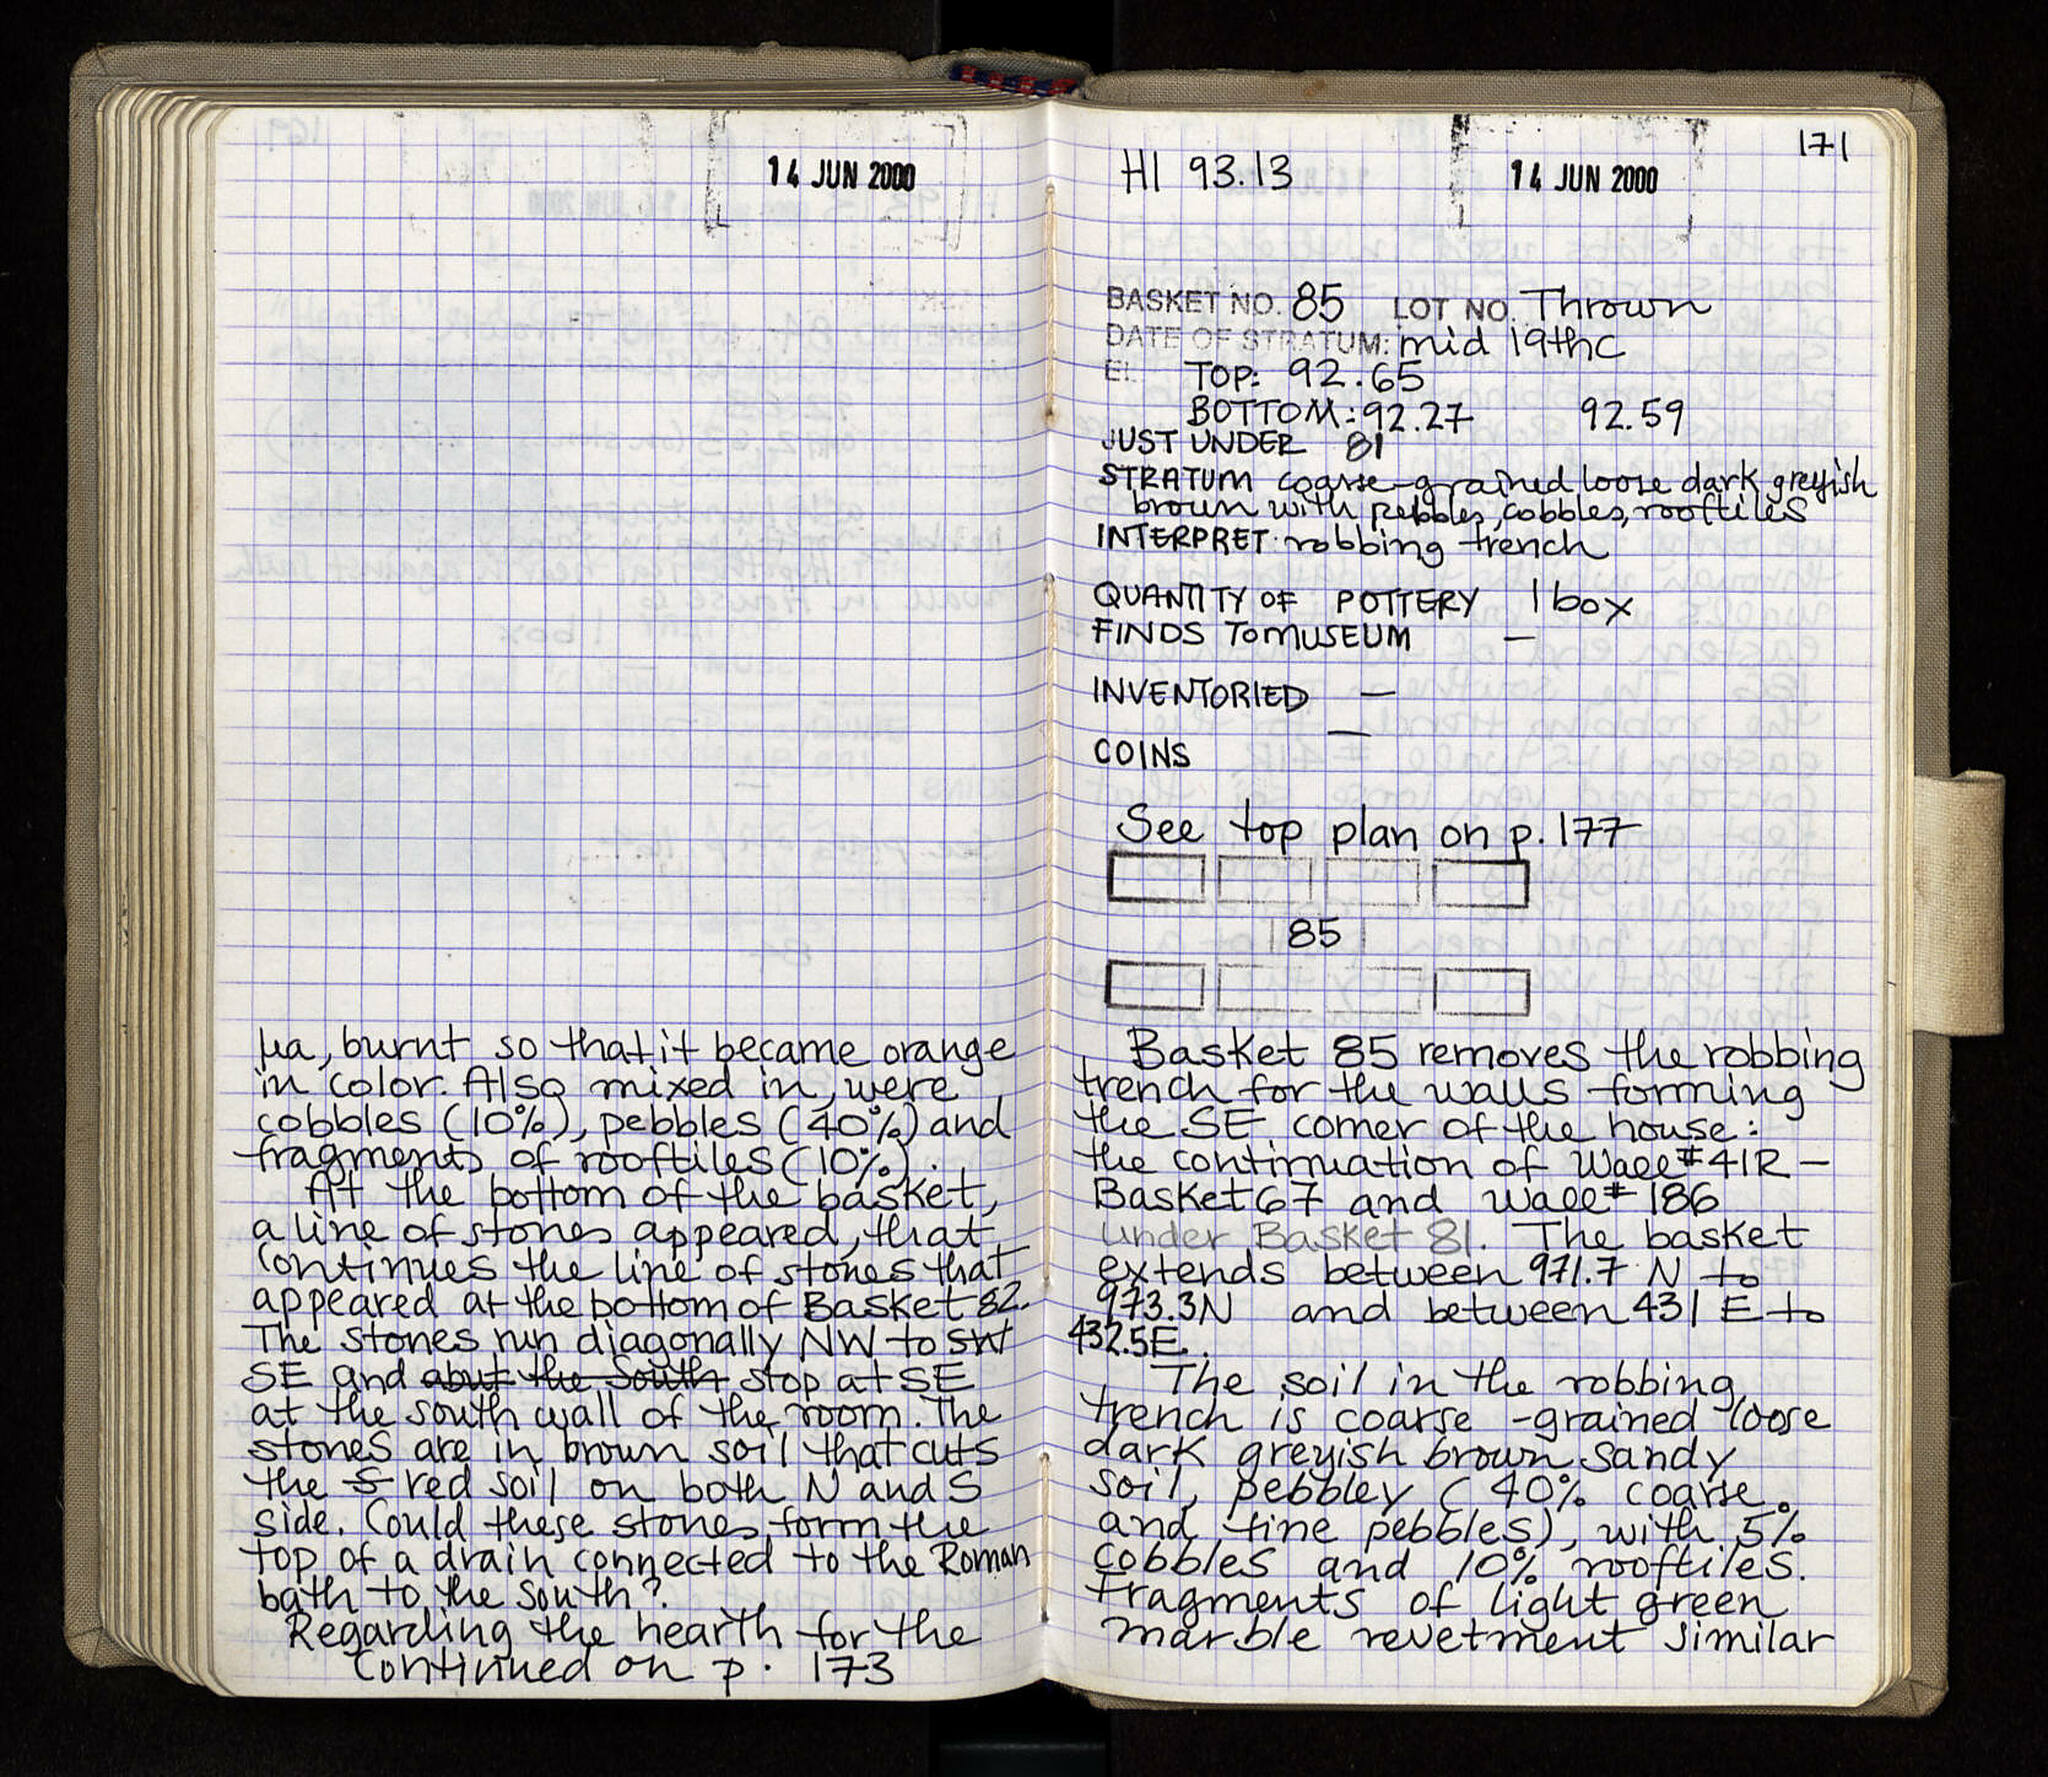 14 JUN 2000
µa, burnt so that it became orange
in color. Also mixed in, were
cobbles (10%), pebbles (40%) and
fragments of rooftiles (10%).
At the bottom of the basket,
a line of stones appeared, that
continues the line of stones that
appeared at the bottom of Basket 82.
The stones run diagonally NW to SW
SE and abut the South stop at SE
at the south wall of the room. The
stones are in brown soil that cuts
the S red soil on both N and S
side. Could these stones form the
top of a drain connected to the Roman
bath to the south?
Regarding the hearth for the
continued on p. 173
171
HI 93.13 14 JUN 2000
BASKET NO. 85 LOT NO. Thrown
DATE OF STRATUM: mid 19thc
EL TOP: 92.65
BOTTOM: 92.27 92.59
JUST UNDER 81
STRATUM coarse-grained loose dark greyish
brown with pebbles, cobbles, rooftiles
INTERPRET: robbing trench
QUANTITY OF POTTERY 1 box
FINDS TO MUSEUM —
INVENTORIED —
COINS —
See top plan on p. 177
85
Basket 85 removes the robbing
trench for the walls forming
the SE corner of the house:
the continuation of Wall #41R –
Basket 67 and wall # 186
under Basket 81. The basket
extends between 971.7 N to
973.3N and between 431 E to
432.5E.
The soil in the robbing
trench is coarse-grained loose
dark greyish brown sandy
soil, pebbley (40% coarse
and fine pebbles), with 5%
cobbles and 10% rooftiles.
Fragments of light green
marble revetment similar